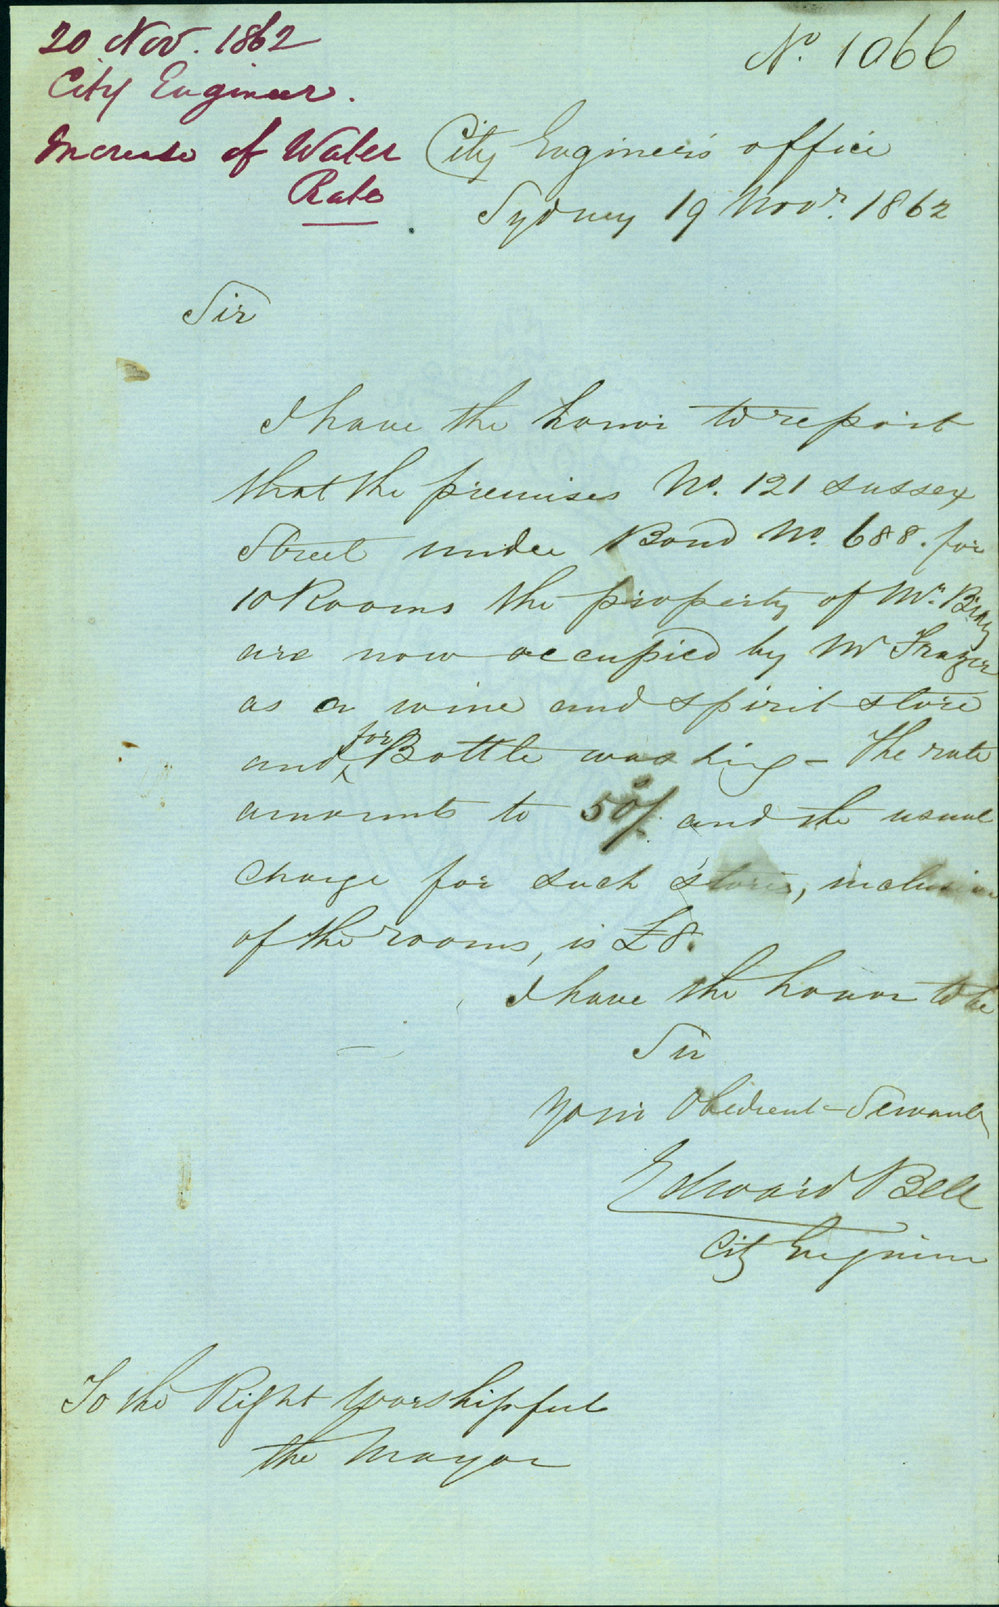 20 Nov. 1862
City Engineer.
Increase of Water
Rate
No. 1066
City Engineer's office
Sydney 19 Novr. 1862
Sir
I have the honor to report
that the premises No. 121 Sussex
Street under Bond No. 688. for
10 Rooms the property of Mr.
are now occupied by Mr Frazer
as a wine and spirit store
and for Bottle washing - The rate
amounts to 50/. and the usual
charge for such stores, inclusive
of the rooms, is £8.
I have the honor to be
Sir
Your Obedient Servant
Edward Bell
City Engineer
To the Right Worshipful
the Mayor